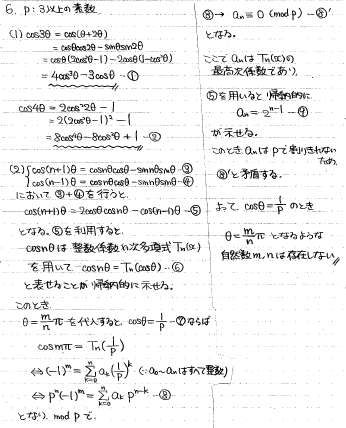 6. p: 3以上の素数
(1) cos3θ = cos(θ+2θ)
= cosθcos2θ - sinθsin2θ
= cosθ(2cos²θ-1) - 2cosθ(1-cos²θ)
= 4cos³θ - 3cosθ …①
cos4θ = 2cos²2θ - 1
= 2(2cos²θ-1)² - 1
= 8cos⁴θ - 8cos²θ + 1 …②
(2) { cos(n+1)θ = cosnθcosθ - sinnθsinθ …③
cos(n-1)θ = cosnθcosθ + sinnθsinθ …④
において ③+④を行うと
cos(n+1)θ = 2cosθcosnθ - cos(n-1)θ …⑤
となる。⑤を利用すると
cosnθは 整数係数n次多項式 Tn(x)
を用いて cosnθ = Tn(cosθ) …⑥
と表せることが帰納的に示せる。
このとき
θ = m/n π を代入すると cosθ = 1/p …⑦ならば
cos mπ = Tn(1/p)
⇔ (-1)^m = Σ[k=0→n] ak (1/p)^k (∵ a0~anはすべて整数)
⇔ p^n (-1)^m = Σ[k=0→n] ak p^(n-k) …⑧
となり、mod p で、
⑧→ an ≡ 0 (mod p) …⑧'
となる。
ここで anは Tn(x)の
最高次係数であり、
⑤を用いると 帰納的に
an = 2^(n-1) …⑨
が示せる。
このとき anは pで割りきれない
ため、
⑧'と矛盾する。
よって cosθ = 1/p のとき
θ = m/n π となるような
自然数m,nは存在しない